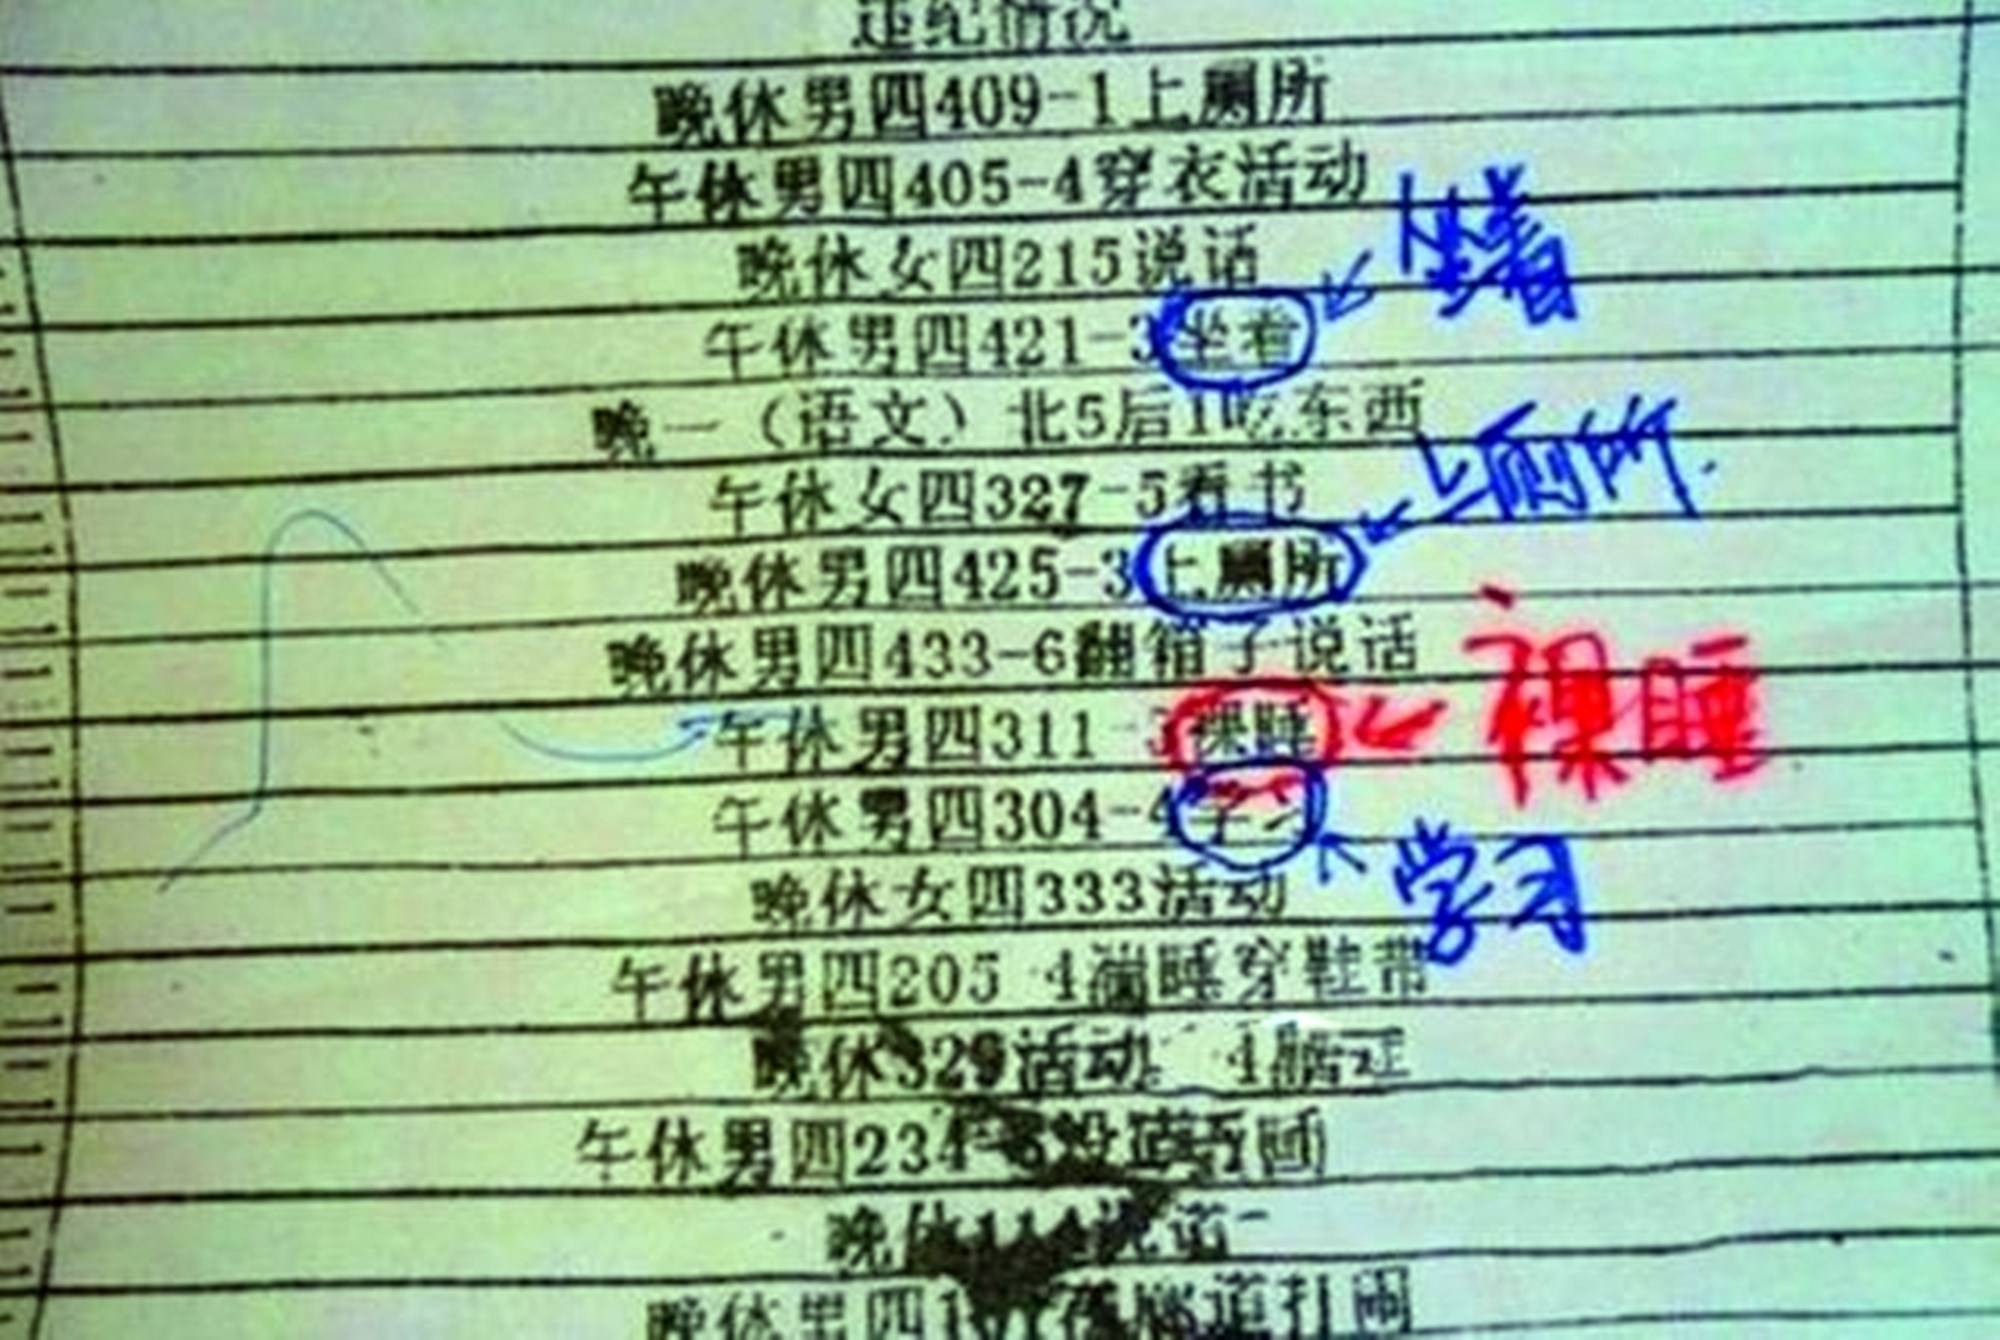 违纪情况
晚休男四409-1上厕所
午休男四405-4穿衣活动
坐着
晚休女四215说话
午休男四421-3坐着
晚一（语文）北5后1吃东西
上厕所
午休女四327-5看书
晚休男四425-3上厕所
晚休男四433-6翻箱子说话
裸睡
午休男四311-3裸睡
午休男四304-4学习
学习
晚休女四333活动
午休男四205-4 睡穿鞋带
晚休329活动 4
午休男四234 睡
晚休 说话
晚休男四1 道打闹